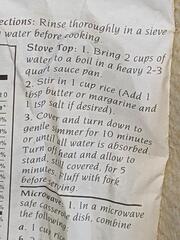 ections: Rinse thoroughly in a sieve
water before cooking.
Stove Top: 1. Bring 2 cups of
water to a boil in a heavy 2-3
quart sauce pan.
2. Stir in 1 cup rice (Add 1
tbsp butter or margarine and
1 tsp salt if desired)
3. Cover and turn down to
gentle simmer for 10 minutes
or until all water is absorbed.
Turn off heat and allow to
stand, still covered, for 5
minutes. Fluff with fork
before serving.
Microwave: 1. In a microwave
safe casserole dish, combine
the following:
a. 1 cup r